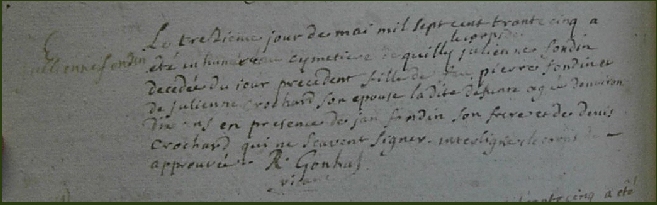 Le treizieme jour de mai mil sept cent trante cinq a
le corps de
été inhumé au cymetiere de quilly julienne fondin
decedée du jour precedent fille de pierre fondin et
de julienne Crochard son epouse la dite defunte agé d'environ
dix ans en presence de jan fondin son frere et de denis
Crochard qui ne scavent signer. interligne le corps de
approuvée R. Gouhas
vicaire
trante cinq a été